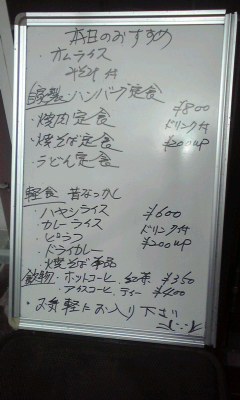 本日のおすすめ
・オムライス
みそ汁付
自家製 ハンバーグ定食
・焼肉定食 ¥800
・焼そば定食 ドリンク付
・うどん定食 ¥200up
軽食 昔なつかし
・ハヤシライス ¥600
・カレーライス ドリンク付
・ピラフ ¥200up
・ドライカレー
・焼そば単品
飲物・ホットコーヒ、紅茶 ¥350
・アイスコーヒ、ティー ¥400
・お気軽にお入り下さい